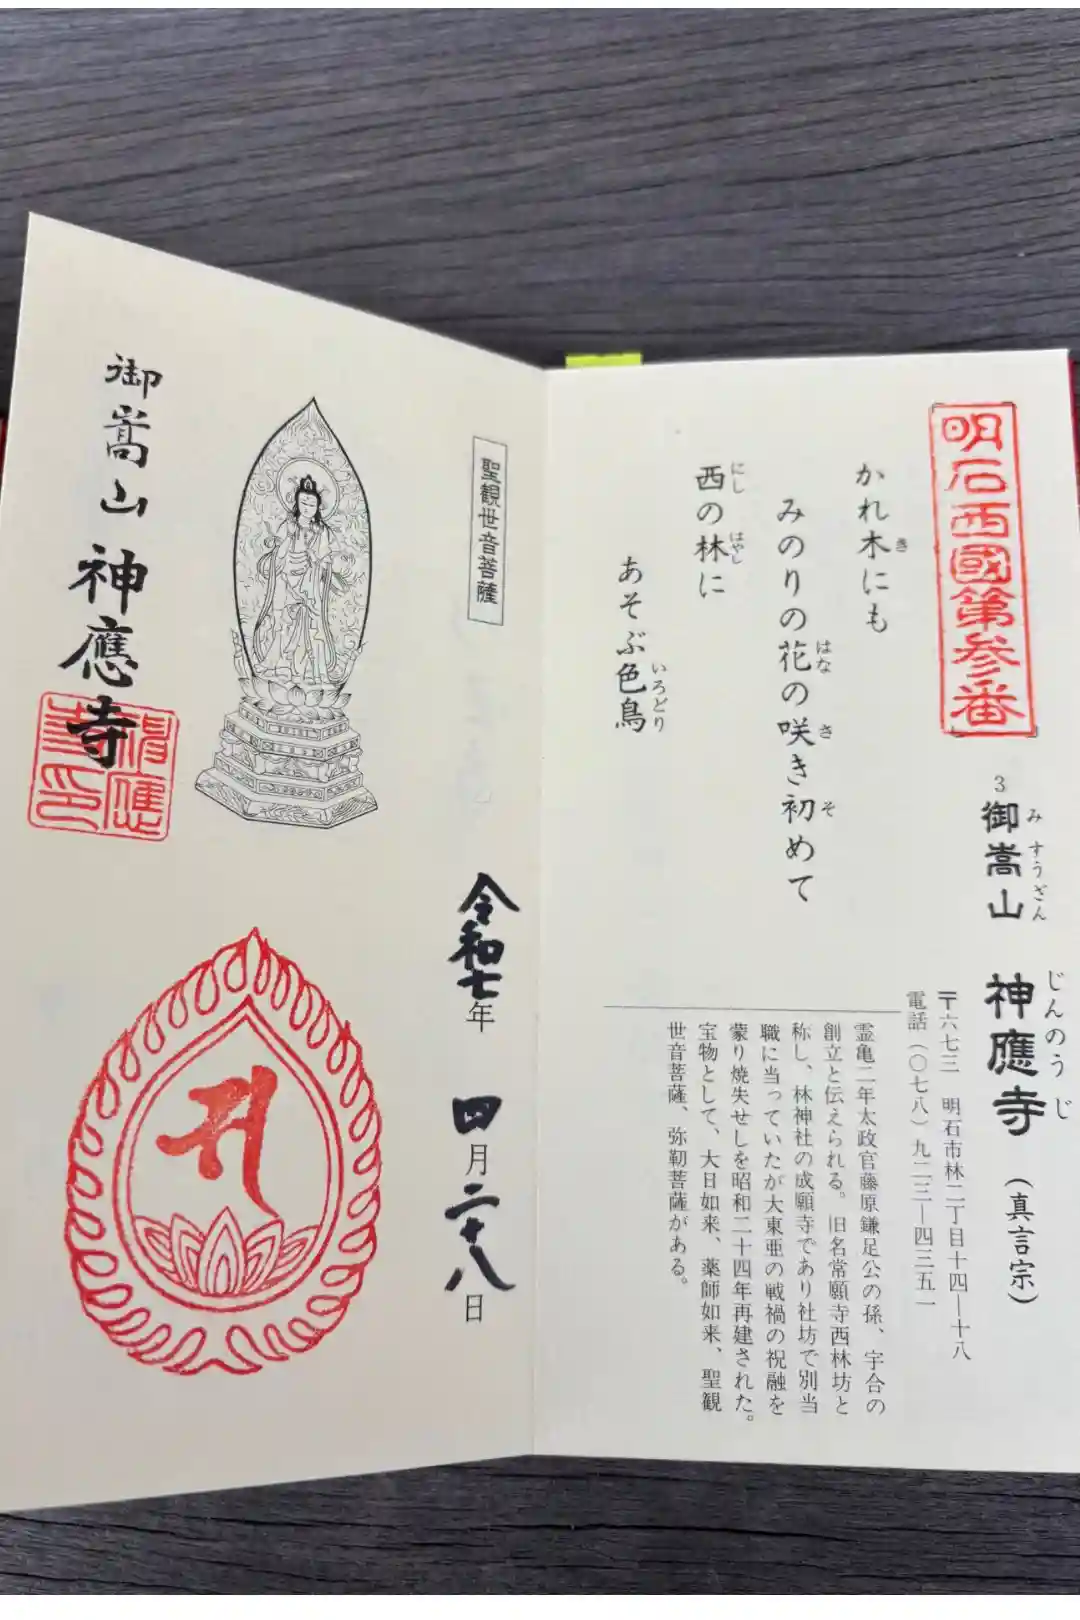 明石西國第参番
3 御嵩山 神應寺(真言宗)
みすうざん じんのうじ
〒六七三 明石市林二丁目十四―十八
電話(〇七八)九二三―四三五一
かれ木にも
き
みのりの花の咲き初めて
はな さ そ
西の林に
にし はやし
あそぶ色鳥
いろどり
霊亀二年太政官藤原鎌足公の孫、宇合の
創立と伝えられる。旧名常願寺西林坊と
称し、林神社の成願寺であり社坊で別当
職に当っていたが大東亜の戦禍の祝融を
蒙り焼失せしを昭和二十四年再建された。
宝物として、大日如来、薬師如来、聖観
世音菩薩、弥勒菩薩がある。
聖観世音菩薩
令和七年 四月二十八日
御嵩山 神應寺
神應寺印